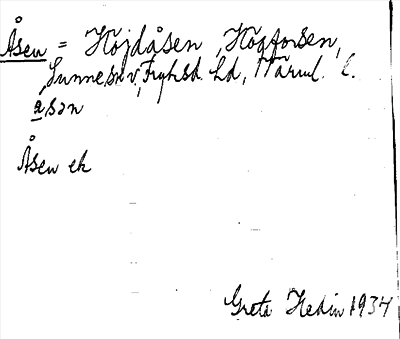 Åsen = Höjdåsen, Högforsen,
Sunne sn, Fryksd. hd, Värml. l.
a,sən
Åsen ek
Greta Hedin 1934